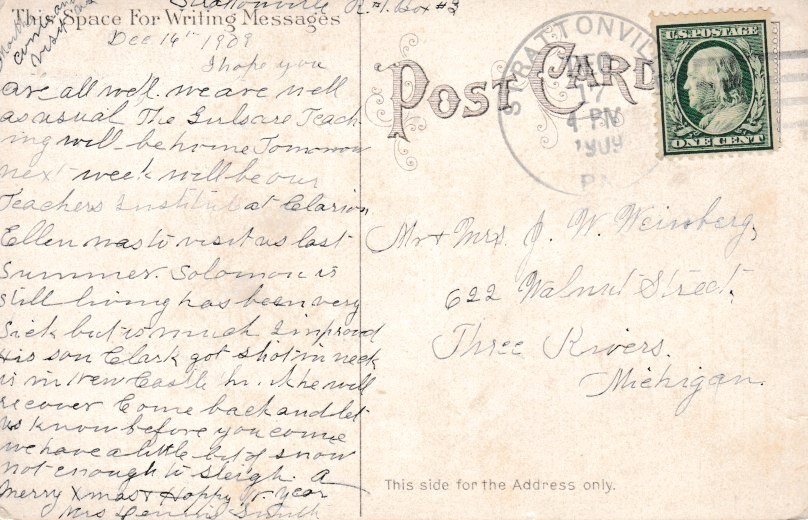 Strattonville R.#1.Box #3
This Space For Writing Messages
come and
visit us
Dec 14th 1909
I hope you
are all well. we are well
as usual The Girls are Teach
ing will be home Tomorrow
next week will be our
Teachers Institut at Clarion
Ellen was to visit us last
Summer. Solomon is
still living has been very
Sick but is much Improved
His son Clark got shot in neck
is in New Castle he will
recover Come back and let
us know before you come
we have a little bit of snow
not enough to sleigh. A
Merry Xmas & Happy N. year
Mrs Smith
POST CARD
STRATTONVIL
DEC
17
4 PM
1909
PA
U.S. POSTAGE
ONE CENT
Mr & Mrs. J. W. Weinberg,
622 Walnut Street.
Three Rivers.
Michigan.
This side for the Address only.